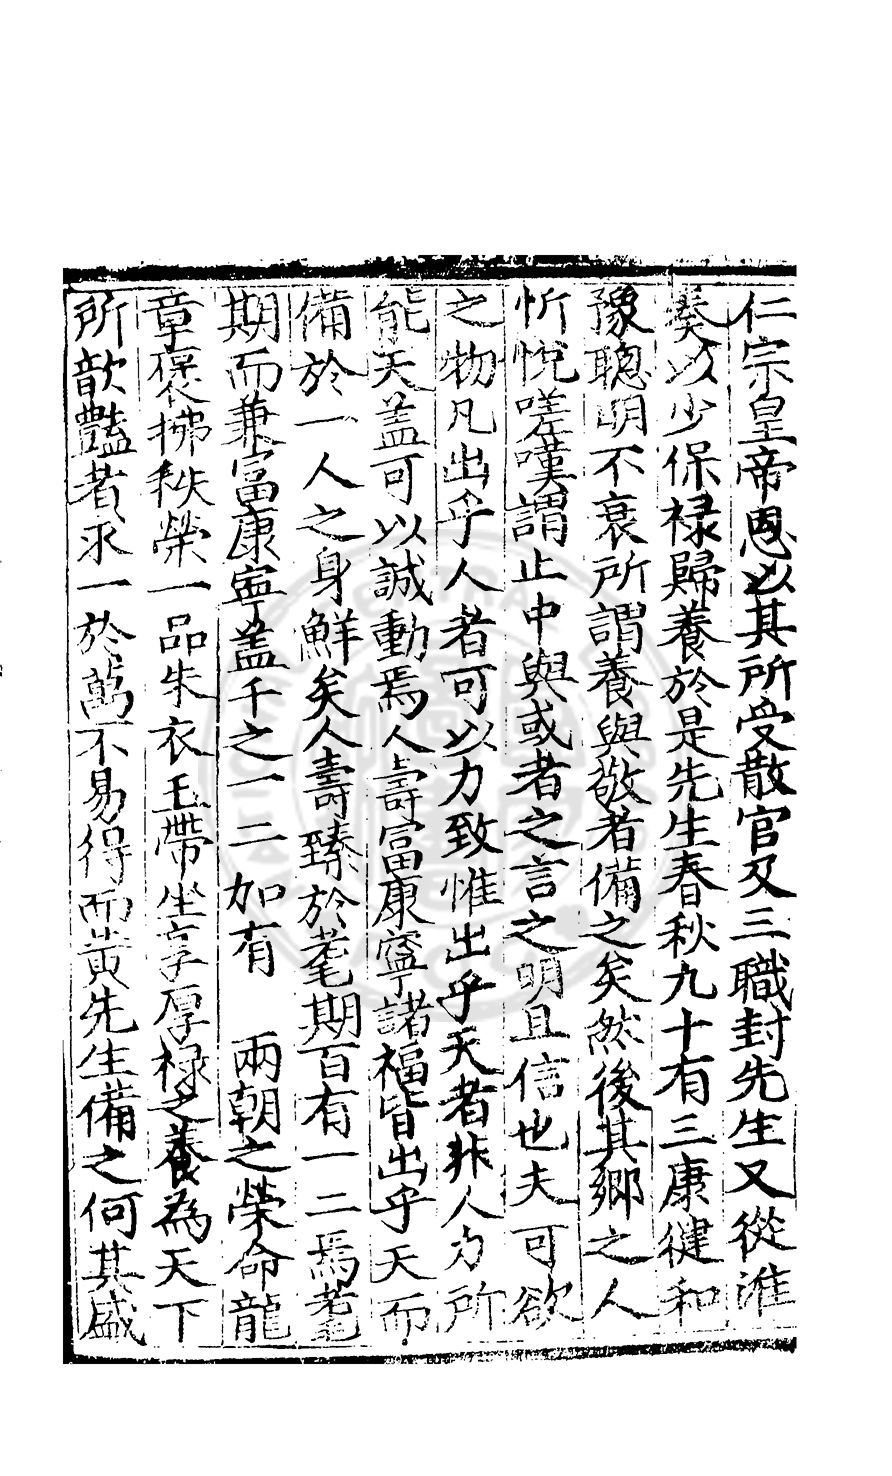 仁宗皇帝恩以其所受散官及三職封先生又從淮
奏以少保祿歸養於是先生春秋九十有三康健和
豫聰明不衰所謂養與敬者備之矣然後其鄉之人
忻悅嗟嘆謂止中與或者之言之明且信也夫可欲
之物凡出乎人者可以力致惟出乎天者非人力所
能天盖可以誠動焉人壽富康寧諸福皆出乎天而
備於一人之身鮮矣人壽臻於耄期百有一二焉耄
期而兼富康寧盖千之一二如有　兩朝之榮命龍
章褒拂秩榮一品朱衣玉帶坐享厚祿之養為天下
所歆豔者求一於萬不易得而黃先生備之何其盛